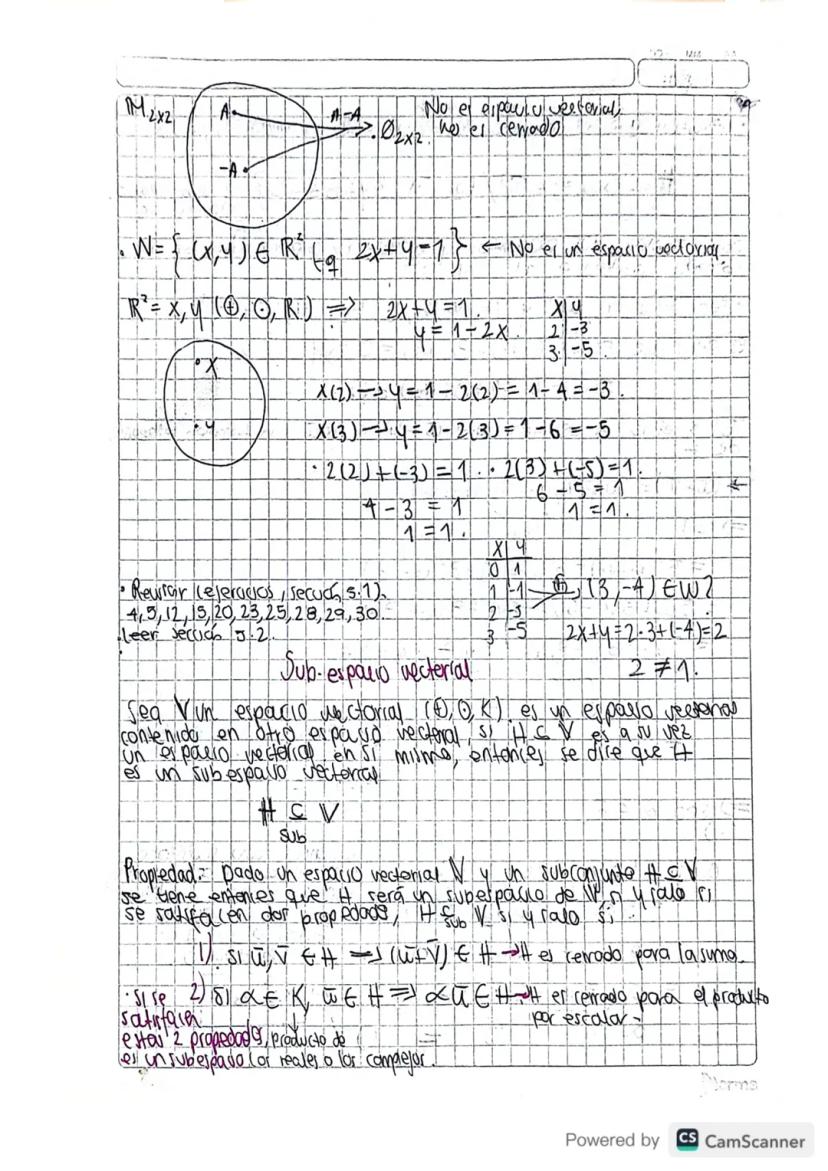 M2x2 A. A-A No es espacio vectorial,
.O2x2. no es cerrado
-A.
. W = { (x,y) ∈ R² tq 2x+y=1 } ← No es un espacio vectorial.
R² = x, y (⊕, ⊙, R) ⇒ 2x+y=1.
y = 1-2x.
x | y
2 | -3
3 | -5
. x
. y
x(2) → y = 1 - 2(2) = 1-4 = -3.
x(3) → y = 1-2(3) = 1-6 = -5
· 2(2)+(-3) = 1. · 2(3)+(-5)=1.
4-3 = 1
1 = 1.
6-5 = 1
1 = 1.
x | y
0 | 1
1 | -1
2 | -3
3 | -5
⊕ (3,-4) ∈ W?
2x+y = 2·3+(-4)=2
2 ≠ 1.
· Revisar (ejercicios, sección 5.1).
4,5,12,15,20,23,25,28,29,30.
.leer sección 5.2.
Sub-espacio vectorial
Sea V un espacio vectorial (⊕,⊙,K), es un espacio vectorial
contenido en otro espacio vectorial, si H ⊆ V es a su vez
un espacio vectorial en si mismo, entonces se dice que H
es un subespacio vectorial
H ⊆ V
sub
Propiedad: Dado un espacio vectorial V y un subconjunto H ⊆ V
se tiene entonces que H será un subespacio de V, si y solo si
se satisfacen dos propiedades, H ⊆sub V si y solo si:
1). si ū, v̄ ∈ H ⇒ (ū+v̄) ∈ H → H es cerrado para la suma.
2) si α ∈ K, ū ∈ H ⇒ αū ∈ H → H es cerrado para el producto
por escalar -
· si se
satisfacen
estas 2 propiedades,
es un subespacio
producto de
los reales o los complejos.
Norma
Powered by CS CamScanner